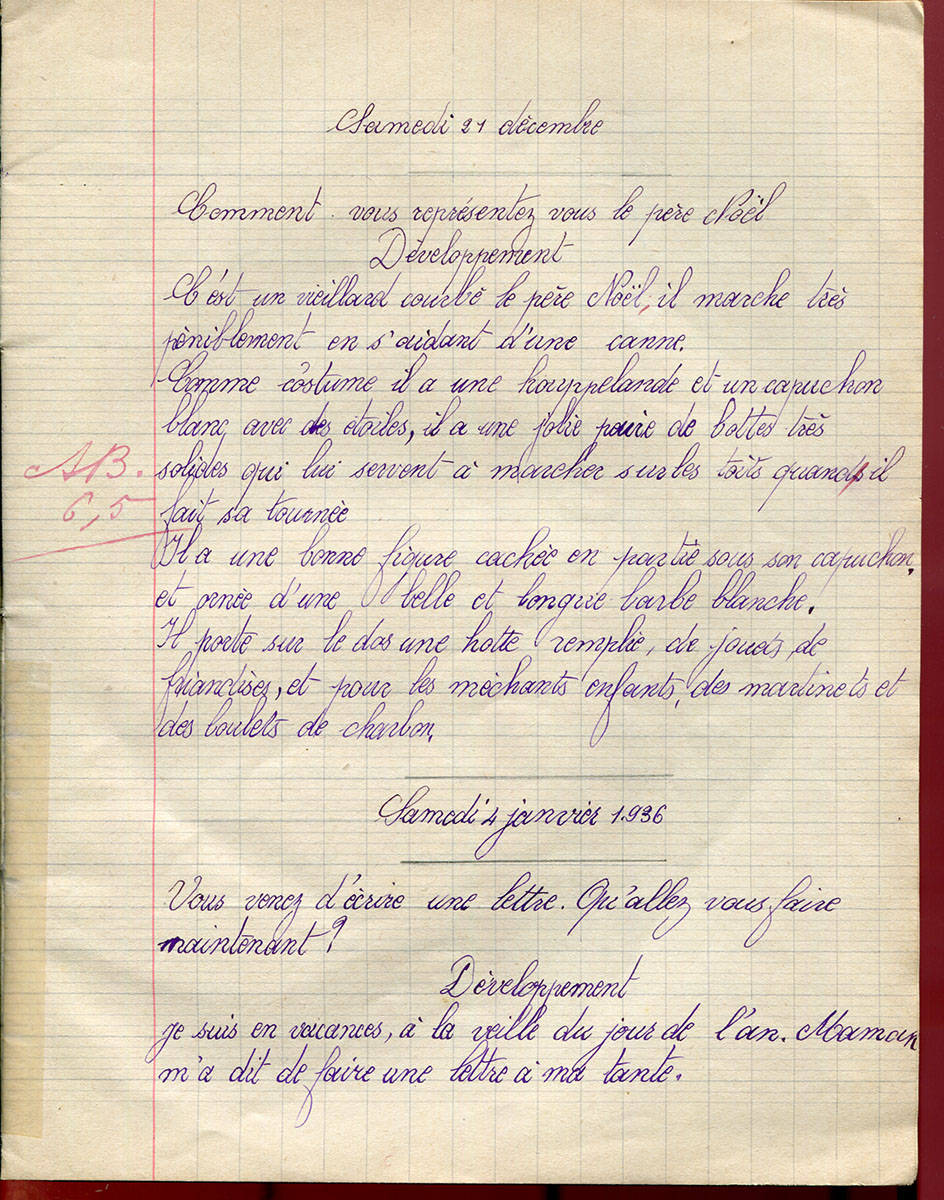 Samedi 21 décembre
Comment vous représentez vous le père Noël
Développement
C'est un vieillard courbé le père Noël, il marche très
péniblement en s'aidant d'une canne.
Comme costume il a une houppelande et un capuchon
blanc avec des étoiles, il a une jolie paire de bottes très
solides qui lui servent à marcher sur les toits quand il
AB.
6,5
fait sa tournée
Il a une bonne figure cachée en partie sous son capuchon,
et ornée d'une belle et longue barbe blanche.
Il porte sur le dos une hotte remplie, de jouets, de
friandises, et pour les méchants enfants, des martinets et
des boulets de charbon.
Samedi 4 janvier 1.936
Vous venez d'écrire une lettre. Qu'allez vous faire
maintenant?
Développement
Je suis en vacances, à la veille du jour de l'an. Maman
m'a dit de faire une lettre à ma tante.